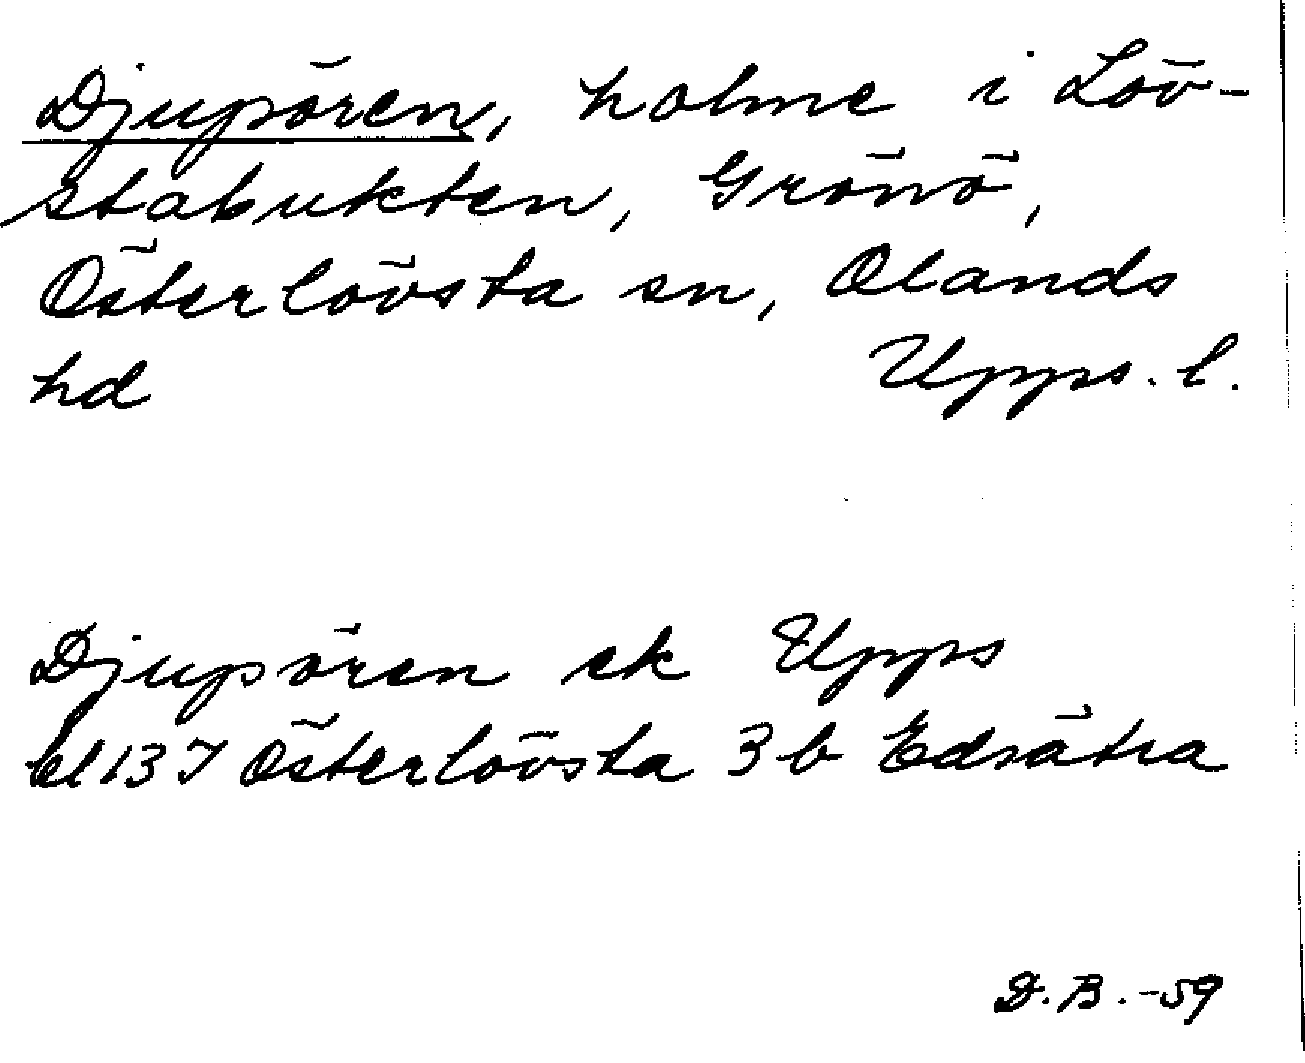 Djupören, holme i Löv-
stabukten, Grönö,
Österlövsta sn, Olands
hd Upps. l.
Djupören ek Upps
bl 137 Österlövsta 3b Edsätra
D.B.-59